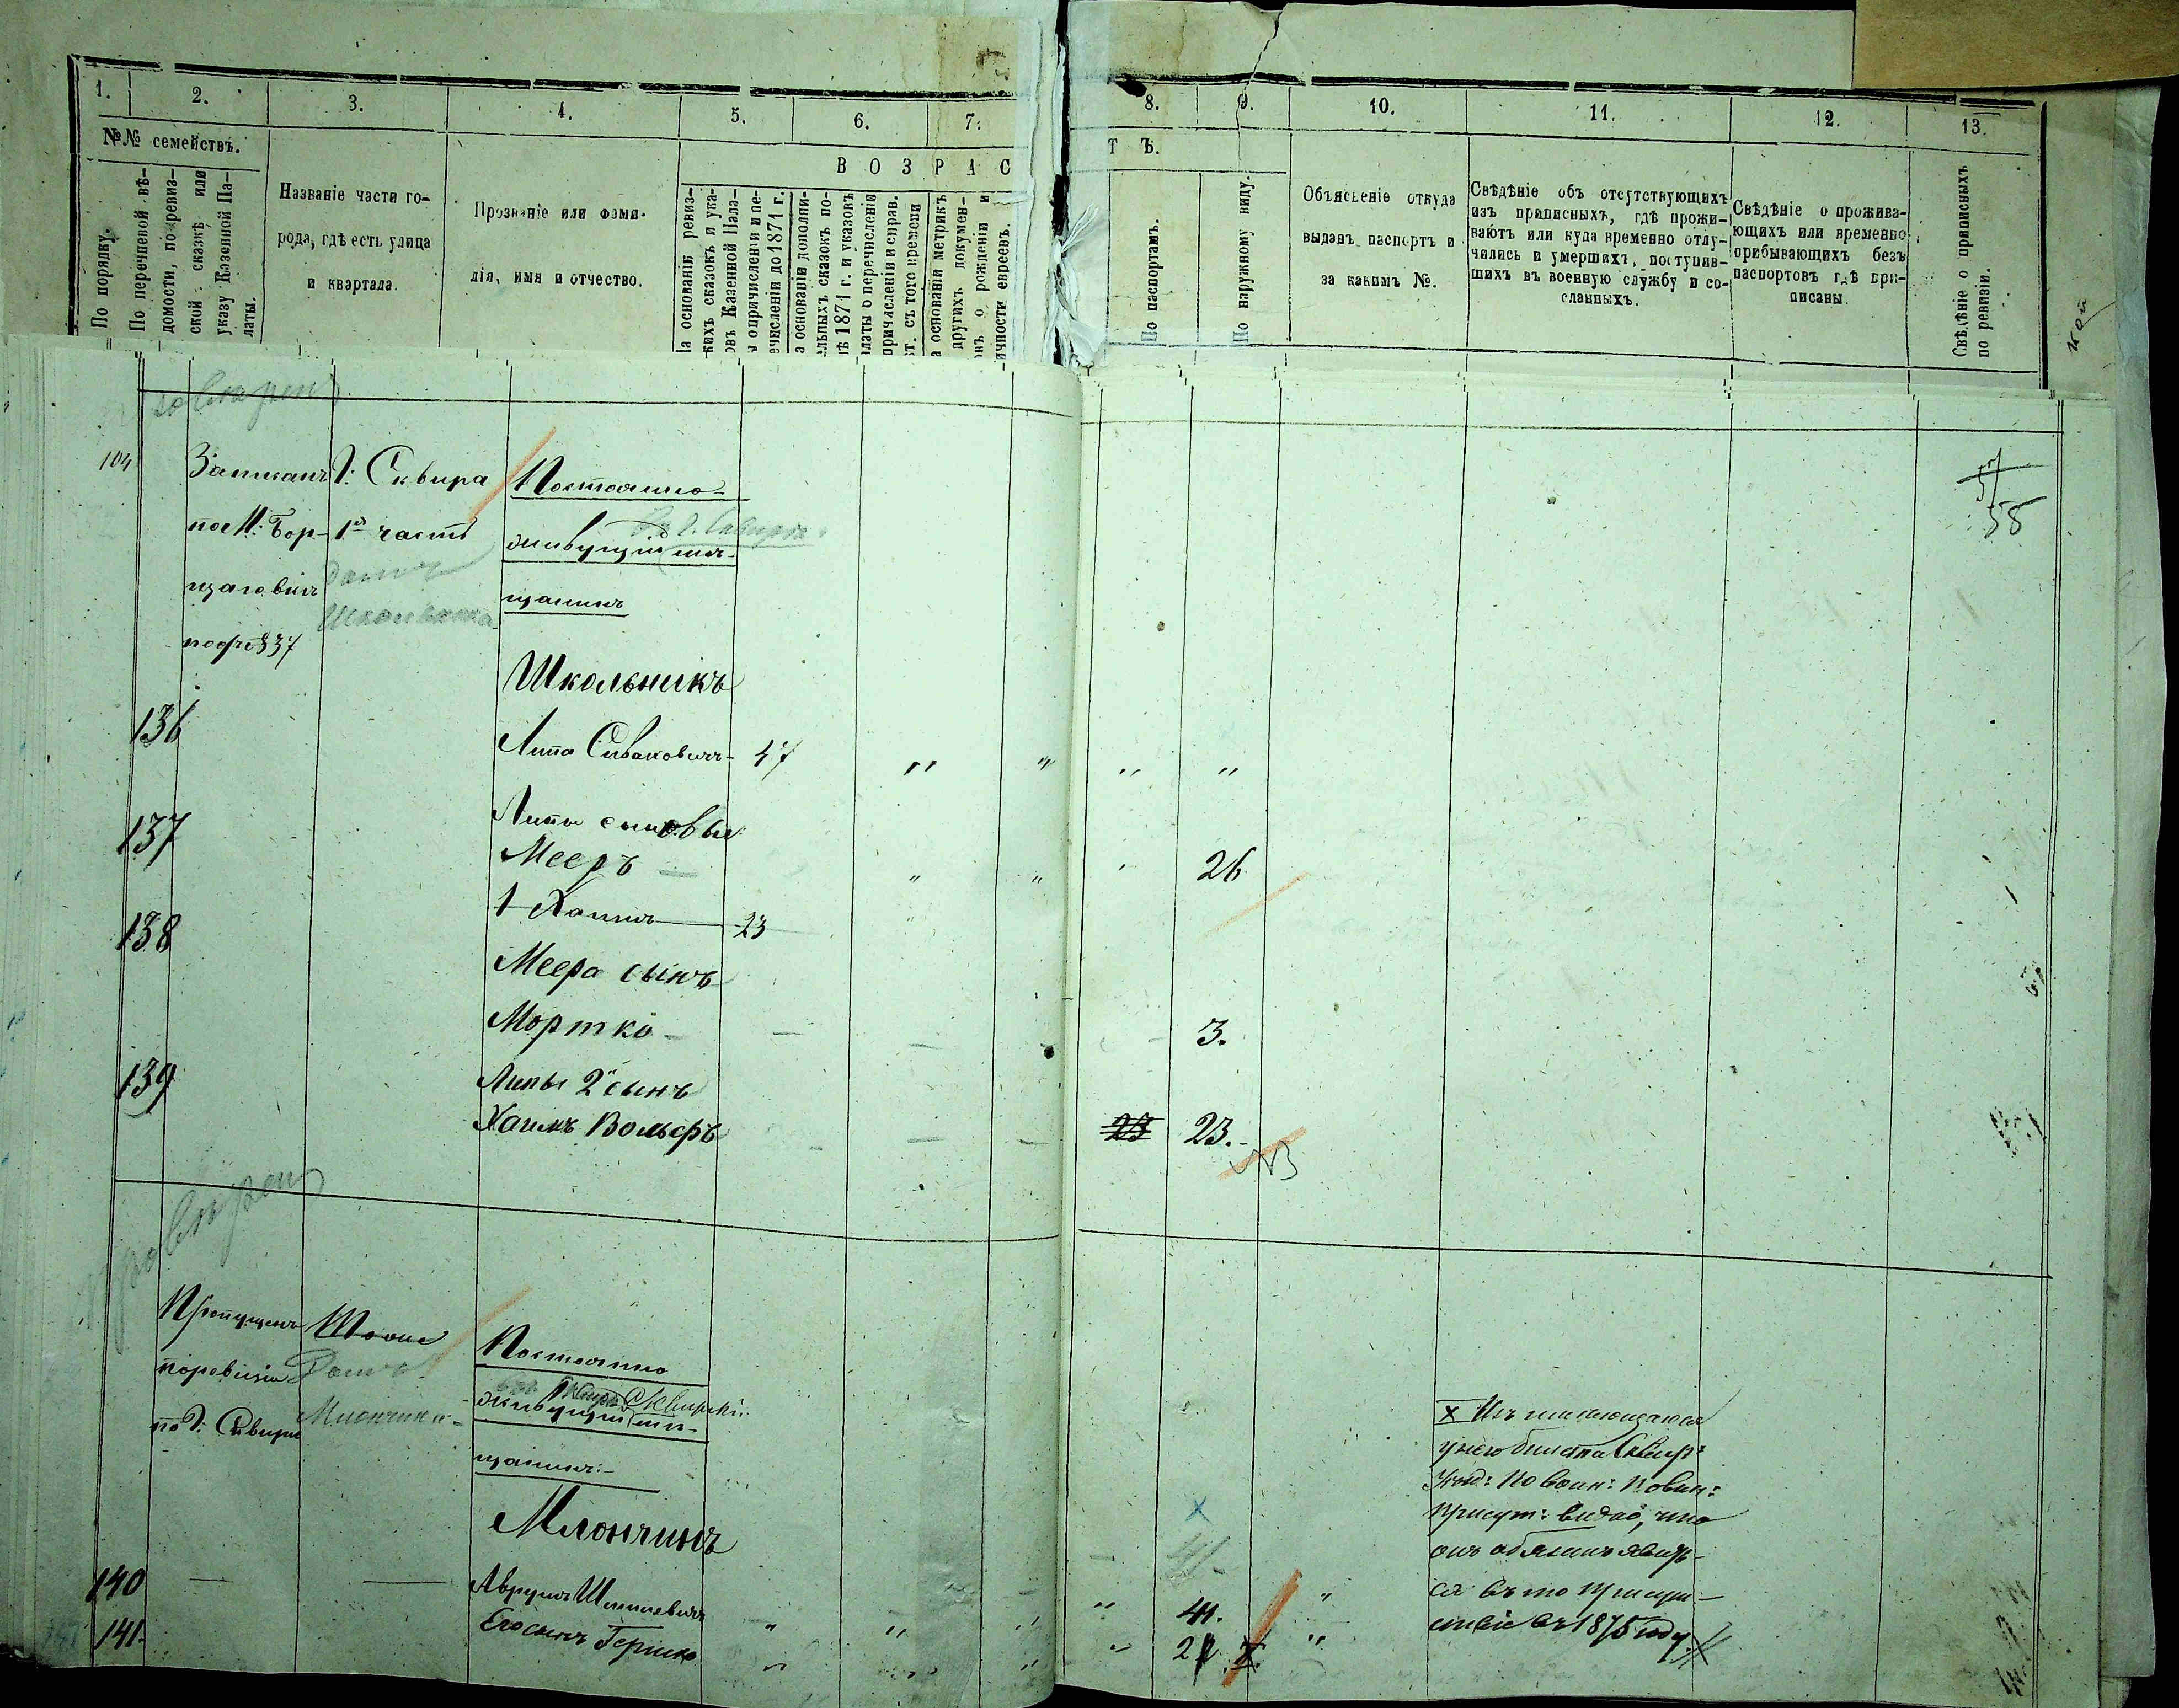 1. 2. 3. 4. 5. 6. 7. 8. 9. 10. 11. 12. 13.
№№ семействъ.
По порядку.
По перечневой вѣ-
домости, по ревиз-
ской сказкѣ или
указу Казенной Па-
латы.
Названіе части го-
рода, гдѣ есть улица
и квартала.
Прозваніе или фами-
лія, имя и отчество.
ВОЗРАС
ТЪ.
а основаніи ревиз-
кихъ сказокъ и ука-
овъ Казенной Пала-
ы о причисленіи и пе-
ечисленіи до 1871 г.
а основаніи дополни-
ельныхъ сказокъ по-
ѣ 1871 г. и указовъ
латы о перечисленіи
причисленіи и справ.
ст. съ того времени
а основаніи метрикъ
другихъ докумен-
овъ о рожденіи и
ичности евреевъ.
По паспортамъ.
По наружному виду.
Объясненіе откуда
выданъ паспортъ и
за какимъ №.
Свѣдѣніе объ отсутствующихъ
изъ приписныхъ, гдѣ прожи-
ваютъ или куда временно отлу-
чились и умершихъ, поступив-
шихъ въ военную службу и со-
сланныхъ.
Свѣдѣніе о прожива-
ющихъ или временно
прибывающихъ безъ
паспортовъ гдѣ при-
писаны.
Свѣдѣніе о приписныхъ
по ревизіи.
104
Записанъ
по М: Бор-
щаговкѣ
837
Г. Сквира
1я часть
домъ
Школьника
Постоянно
живущій мѣ-
щанинъ
57
58
Школьникъ
136 Липа 47
137 Липы сыновья
Мееръ 26
138 Хаимъ 23
Меера сынъ
Мортко 3.
139 Липы 2й сынъ
Хаимъ Вольфъ 23 23.
NB
Пропущенъ
по ревизіи
по г. Сквирѣ
Домъ
Постоянно
живущій мѣ-
щанинъ
Млончинъ
140 Аврумъ 41.
141. Его сынъ Гершко 2 X
X Изъ имѣющагося
у него билета Сквир:
Уѣзд: по воин: повин:
Присут: видно, что
онъ обязанъ явить-
ся въ то Присут-
ствіе въ 1875 году